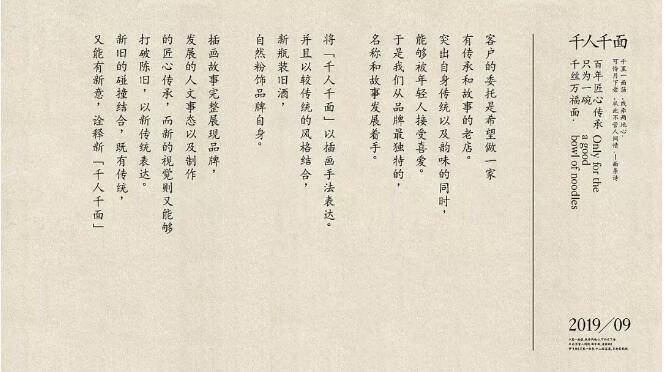 千人千面
可怜月下老,从此不管人间情。—面条诗
百年匠心传承
只为一碗
千丝万福面。
Only for the
a good
bowl of noodles
2019/09
客户的委托是希望做一家
有传承和故事的老店。
突出自身传统以及韵味的同时,
能够被年轻人接受喜爱。
于是我们从品牌最独特的,
名称和故事发展着手。
将「千人千面」以插画手法表达。
并且以较传统的风格结合,
新瓶装旧酒,
自然粉饰品牌自身。
插画故事完整展现品牌,
发展的人文事态以及制作
的匠心传承,而新的视觉则又能够
打破陈旧,以新传统表达。
新旧的碰撞结合,既有传统,
又能有新意,诠释新「千人千面」